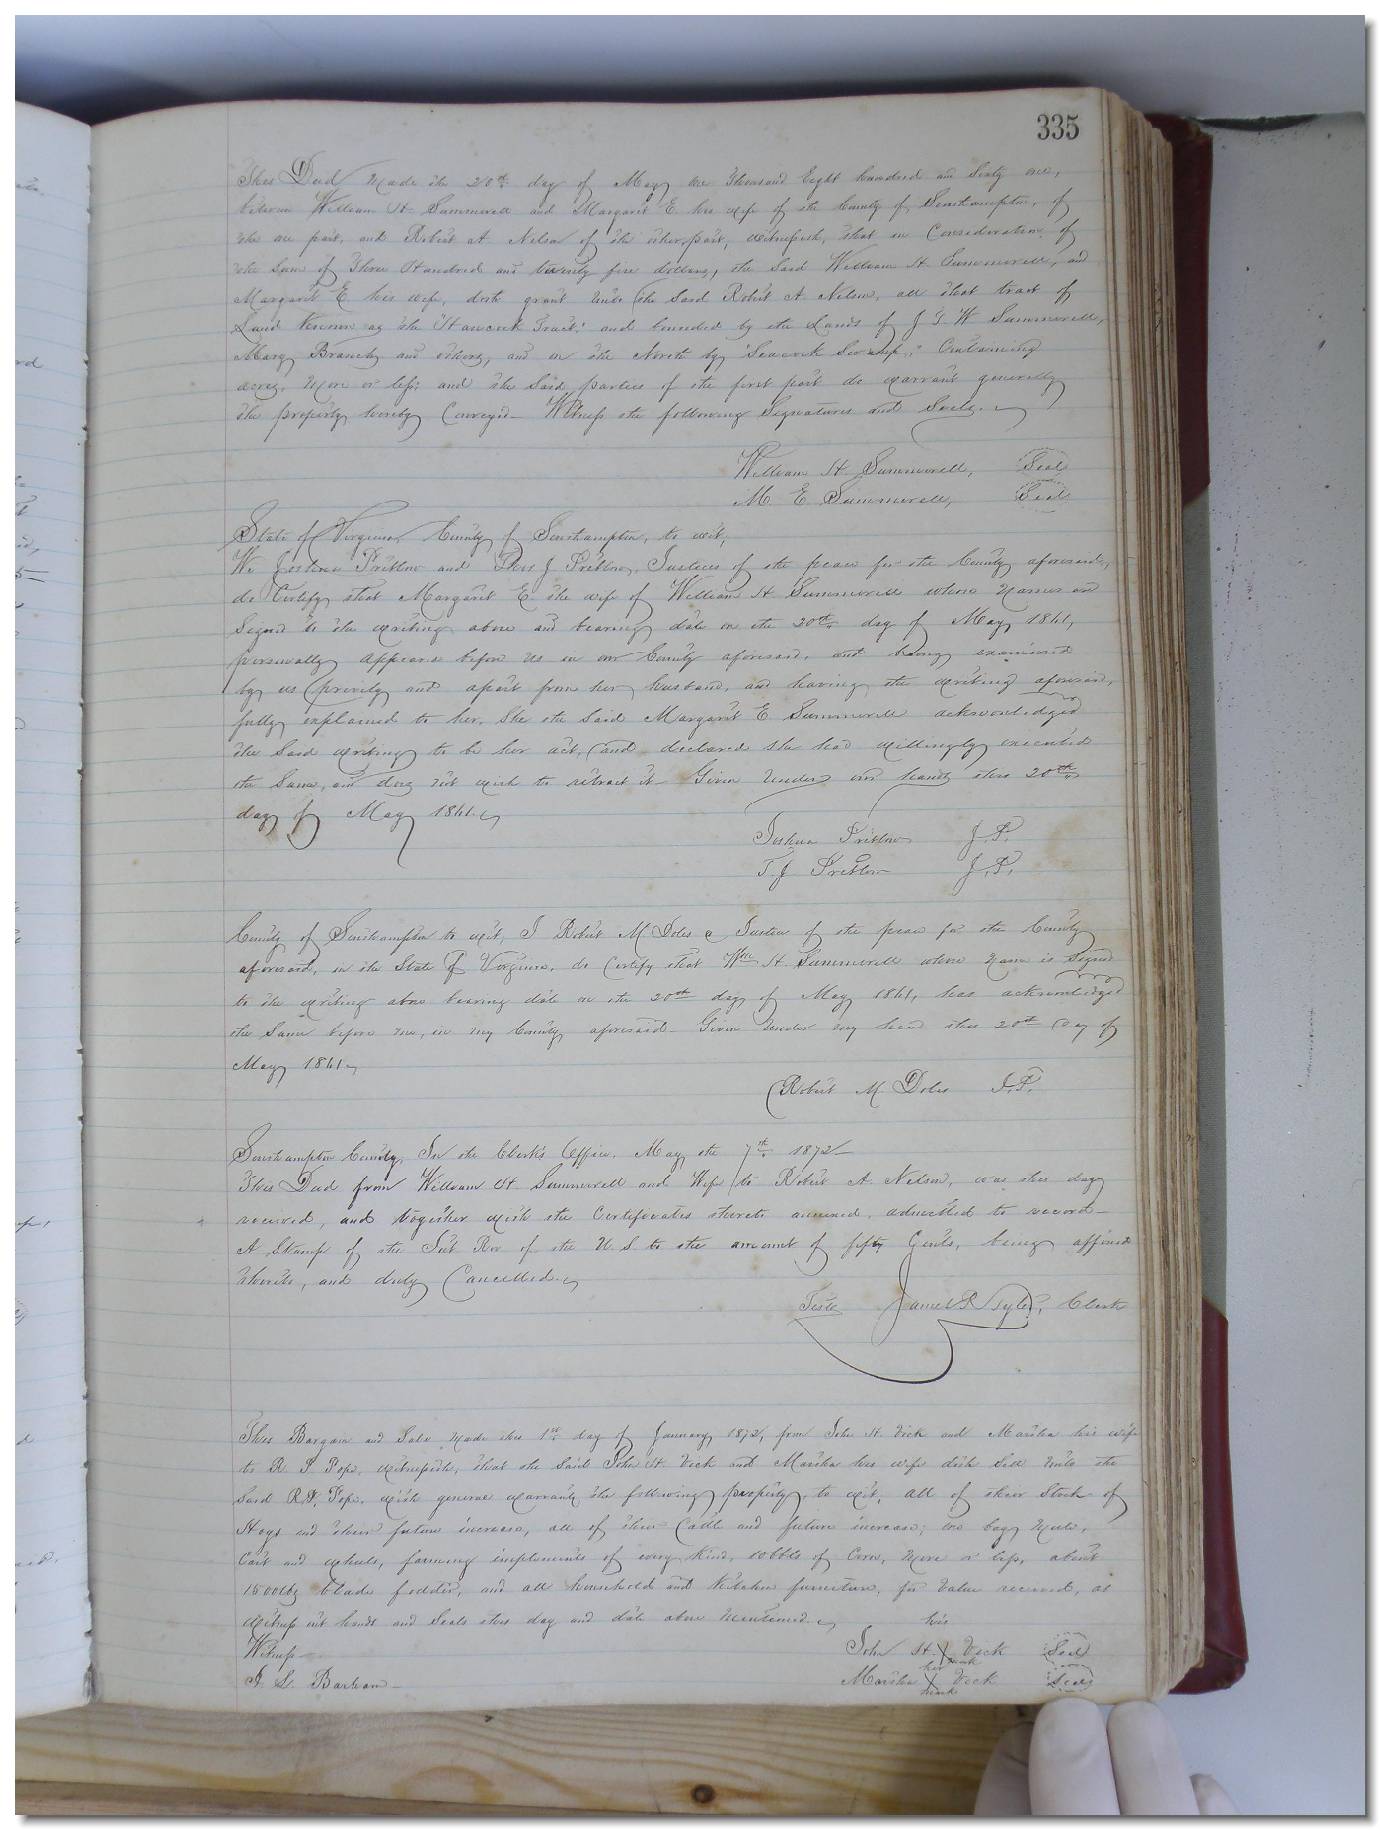 335
This Deed made the 20th day of May one Thousand Eight hundred and Sixty one,
between William H Summerell and Margaret E his wife of the County of Southampton, of
the one part, and Robert A Nelson of the other part, witnesseth, that in Consideration of
the Sum of Three Hundred and twenty five dollars, the Said William H Summerell, and
Margaret E his wife, doth grant unto the Said Robert A Nelson, all that tract of
Land known as the "Hancock Tract," and bounded by the Lands of J T W Summerell,
Mary Branch and others, and on the North by "Seacock Swamp," Containing
acres, more or less; and the Said parties of the first part do warrant generally
the property hereby Conveyed— Witness the following Signatures and Seals.
William H Summerell, Seal
M. E Summerell, Seal
State of Virginia, County of Southampton, to wit;
We Joshua Pretlow and Thos J Pretlow, Justices of the peace for the County aforesaid,
do Certify that Margaret E the wife of William H Summerell whose Names are
Signed to the writing above and bearing date on the 20th day of May 1861,
personally appears before us in our County aforesaid, and being examined
by us privily and apart from her husband, and having the writing aforesaid,
fully explained to her, She the Said Margaret E Summerell acknowledged
the Said writing to be her act, and declared She had willingly executed
the Same, and does not wish to retract it— Given Under our hands this 20th
day of May 1861.
Joshua Pretlow J.P.
T. J Pretlow J.P.
County of Southampton to wit, I Robert M Doles a Justice of the peace for the County
aforesaid, in the State of Virginia, do Certify that Wm H Summerell whose Name is Signed
to the writing above bearing date on the 20th day of May 1861, has acknowledged
the Same before me, in my County aforesaid— Given Under my hand this 20th day of
May 1861
Robert M. Doles J.P.
Southampton County, In the Clerk's Office, May the 7th 1872
This Deed from William H Summerell and Wife to Robert A. Nelson, was this day
received, and together with the Certificates thereto annexed, admitted to record—
A Stamp of the Int Rev of the U. S. to the amount of fifty Cents, being affixed
thereto, and duly Cancelled.
Teste James R Tyler, Clerk
This Bargain and Sale made this 1st day of January 1872, from John H. Vick and Martha his wife
to R. H. Pope, witnesseth, that the Said John H. Vick and Martha his wife doth Sell Unto the
Said R H. Pope, with general warranty the following property, to wit, all of their Stock of
Hogs and their future increase, all of their Cattle and future increase; one bay Mule,
Cart and wheels, farming implements of every kind, 10bbls of Corn, more or less, about
1500lbs blade fodder, and all household and Kitchen furniture, for Value received, as
witness our hands and Seals this day and date above Mentioned.
Witness John H. his X mark Vick Seal
J. L. Barham— Martha her X mark Vick Seal